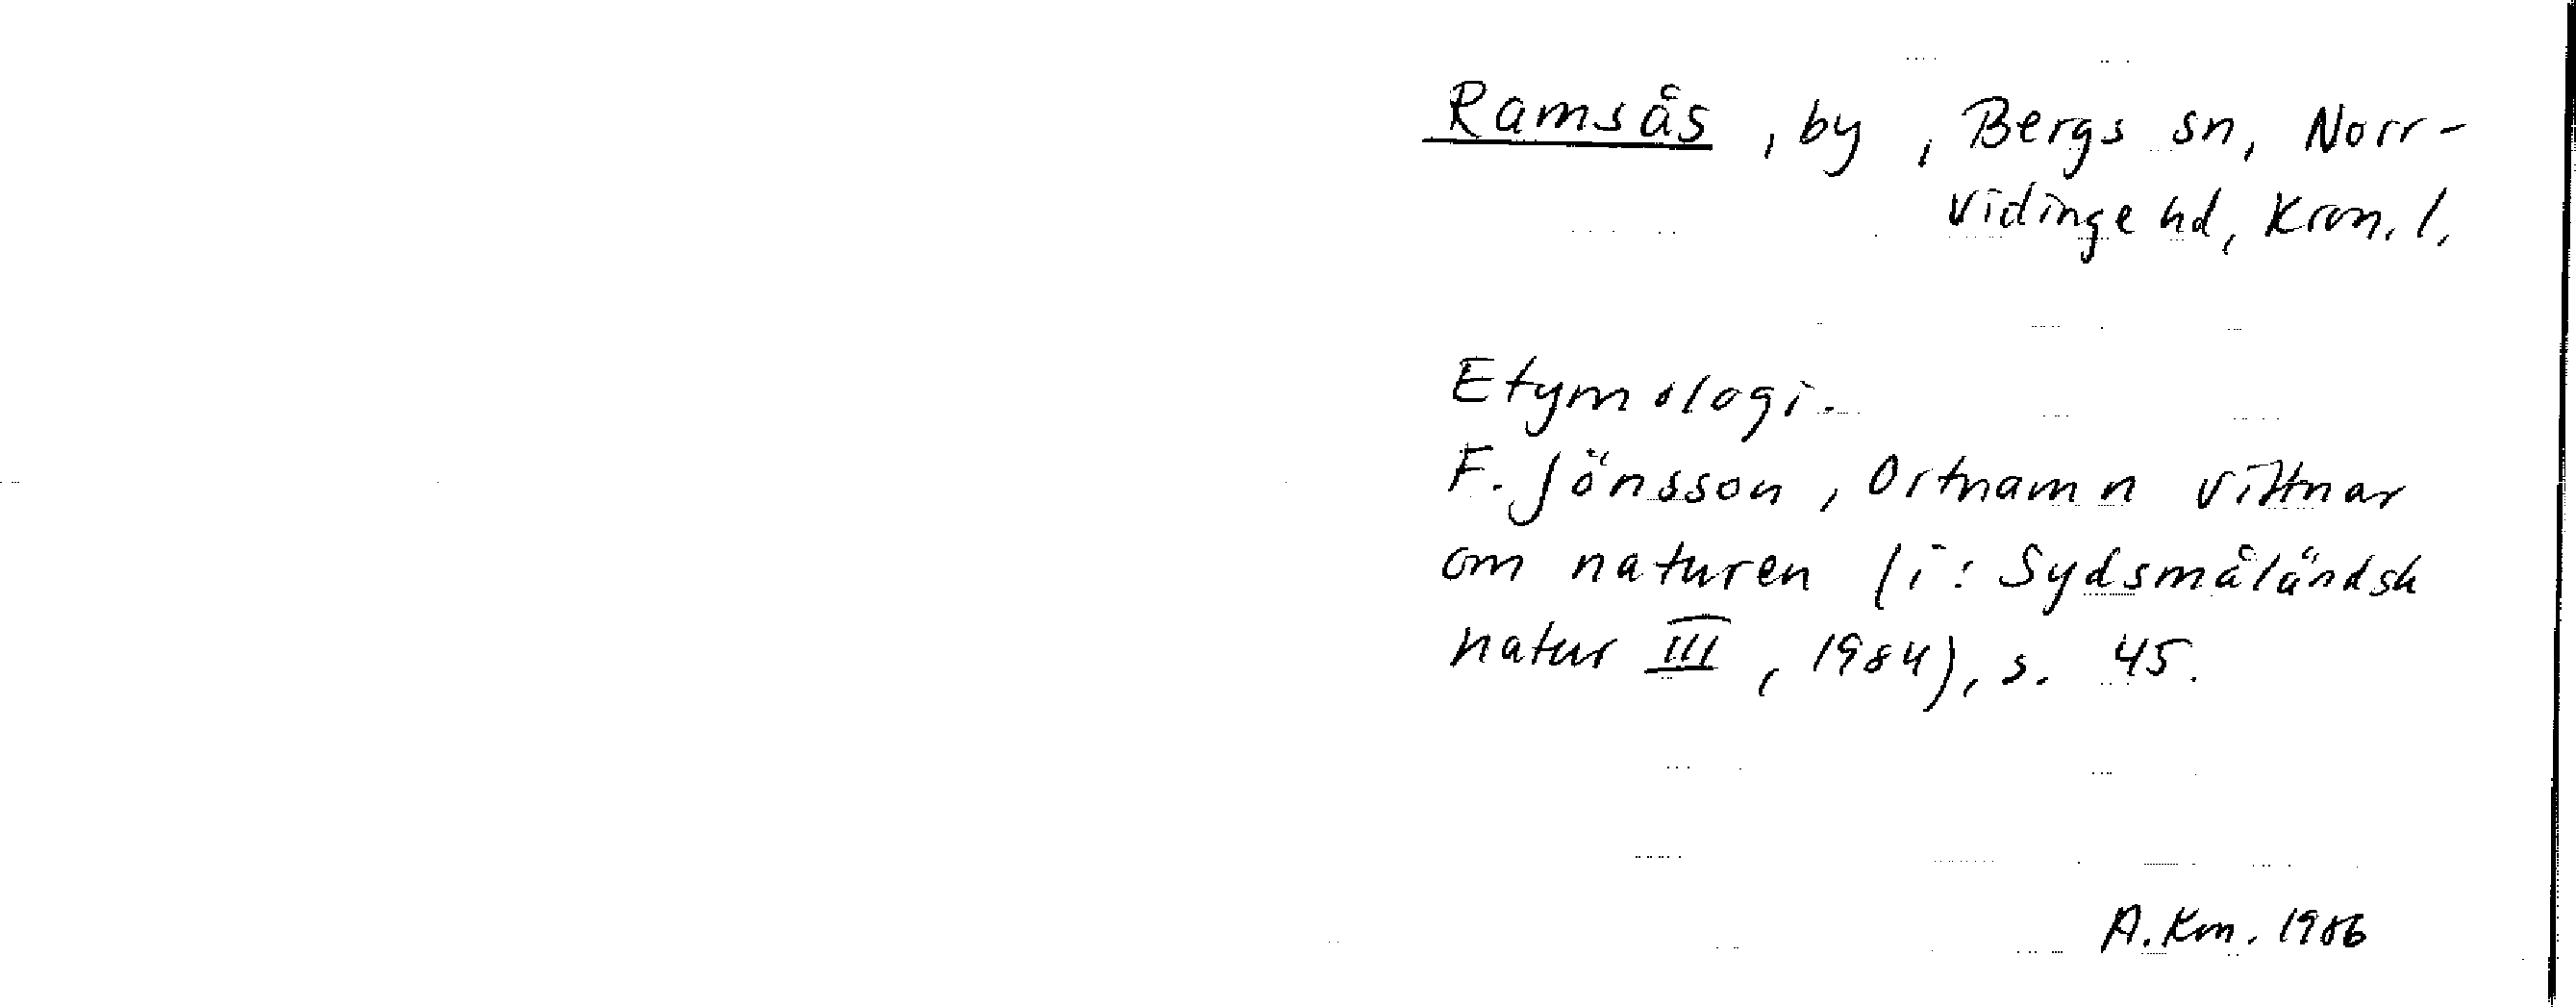 Ramsås, by, Bergs sn, Norr-
vidinge hd, Kron. l.
Etymologi.
F. Jönsson, Ortnamn vittnar
om naturen (i: Sydsmåländsk
natur III, 1984), s. 45.
A. Km. 1986